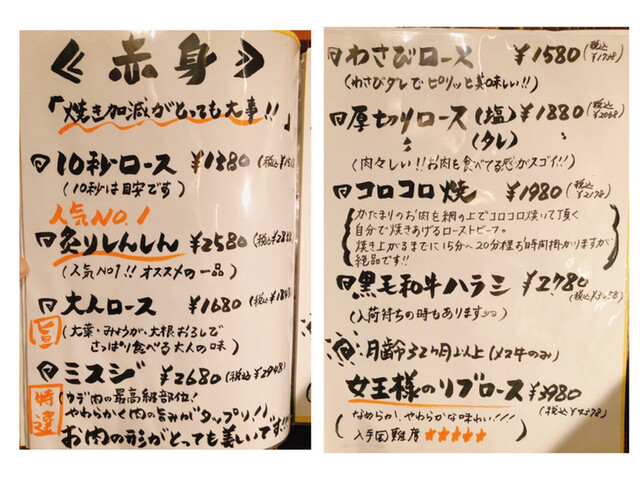 ≪赤身≫
「焼き加減がとっても大事!!」
10秒ロース ¥1380
(10秒は目安です)
人気NO.1
炙りしんしん ¥2580
(人気No1!! オススメの一品)
大人ロース ¥1680
旨
(大葉・みょうが・大根おろしで
さっぱり食べる大人の味)
ミスジ ¥2680 (税込¥2948)
特選
(ウデ肉の最高級部位!
やわらかく肉の旨みがタップリ!!)
お肉の形がとっても美しいです!!
わさびロース ¥1580 (税込¥1738)
(わさびダレでピリッと美味しい!!)
厚切りロース (塩) ¥1880 (税込¥2068)
(タレ)
(肉々しい!!お肉を食べてる感がスゴイ!!)
コロコロ焼 ¥1980 (税込¥2178)
(かたまりのお肉を網の上でコロコロ焼いて頂く
自分で焼きあげるローストビーフ。
焼き上がるまでに15分～20分程お時間掛かりますが
絶品です!!)
黒毛和牛ハラミ ¥2780
(税込¥3058)
(入荷待ちの時もあります)
月齢32ヶ月以上(メス牛のみ)
女王様のリブロース ¥3980
(税込¥4378)
(なめらか、やわらかな味わい!!!
入手困難度 ★★★★★)